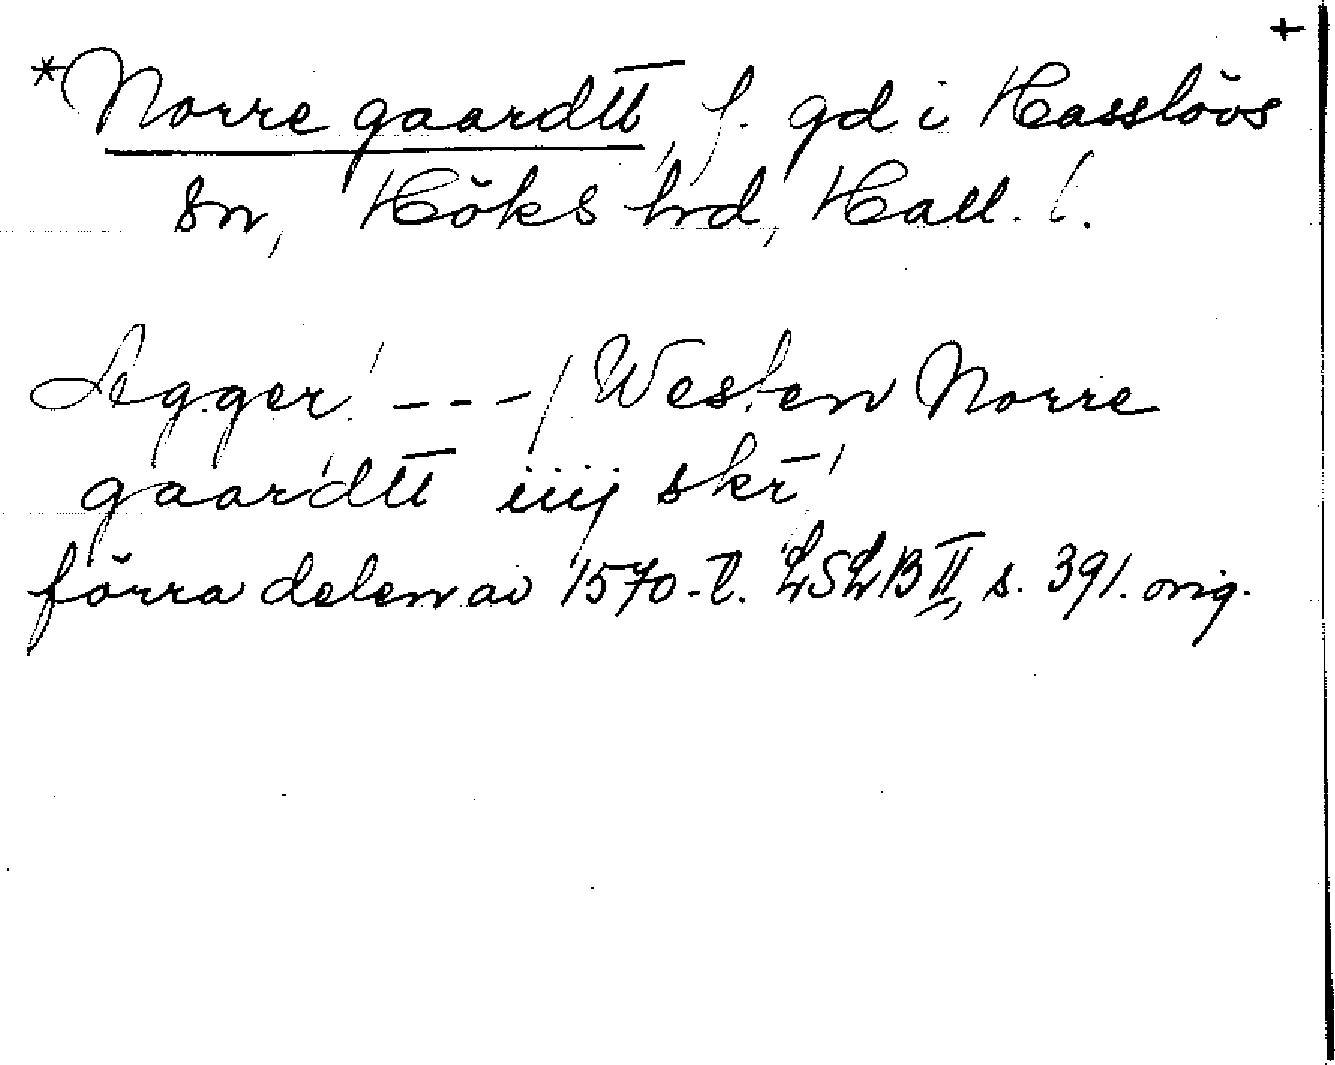 +
*Norre gaardtt, f. gd i Hasslövs
sn, Höks hrd, Hall. l.
Agger! --- / Westen Norre
gaardtt iiij skr̄
förra delen av 1570-t. LSLB II, s. 391. orig.